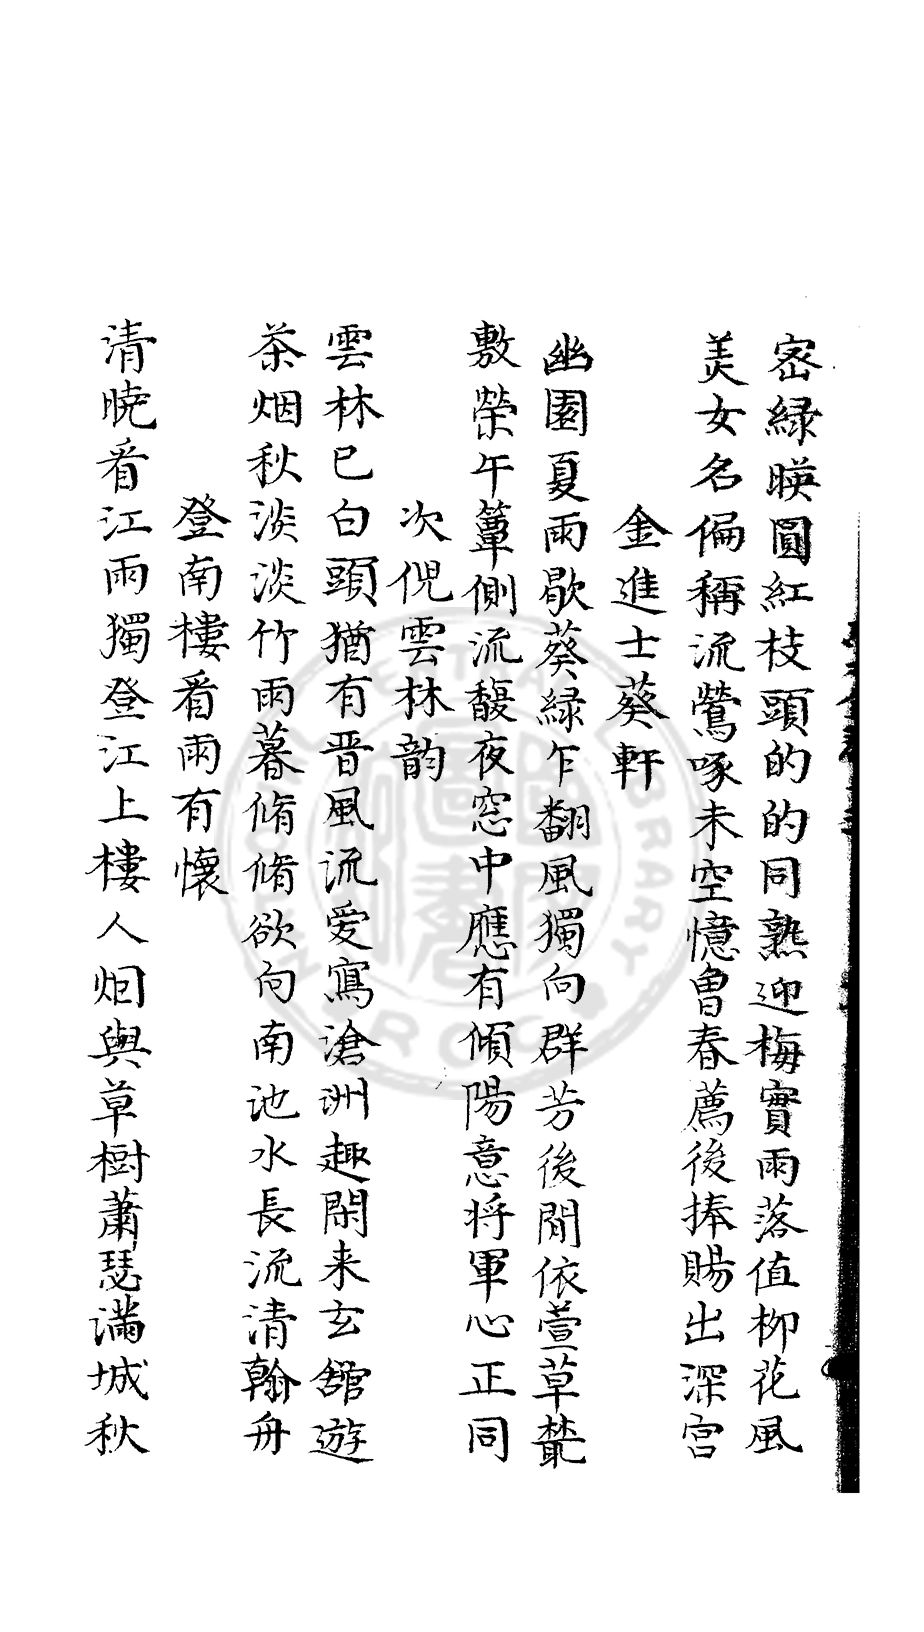 密緑暎圓紅枝頭的的同熟迎梅實雨落值柳花風
美女名偏稱流鶯啄未空憶曽春薦後捧賜出深宮
金進士葵軒
幽園夏雨歇葵緑乍翻風獨向群芳後閒依萱草叢
敷榮午簟側流馥夜窓中應有傾陽意将軍心正同
次倪雲林韵
雲林已白頭猶有晋風流愛寫滄洲趣閑来玄舘遊
茶烟秋淡淡竹雨暮翛翛欲向南池水長流清翰舟
登南樓看雨有懷
清曉看江雨獨登江上樓人烟與草樹蕭瑟滿城秋